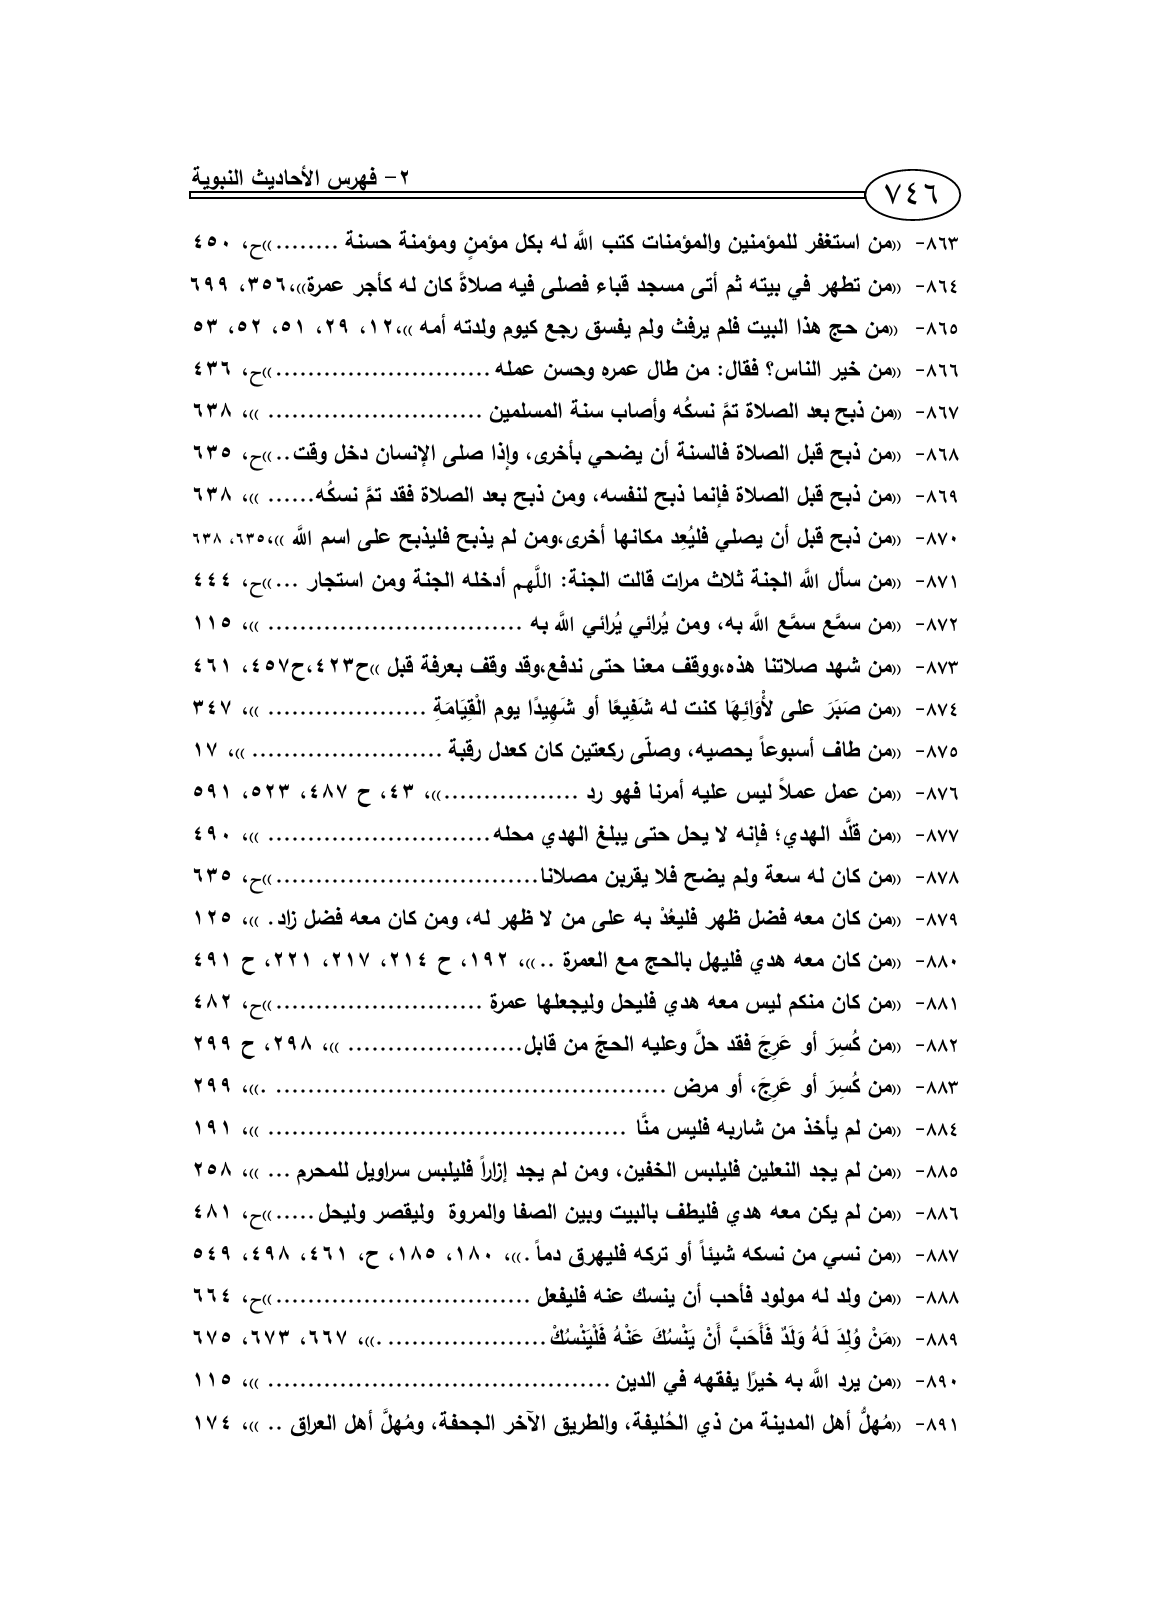 ٧٤٦
٢- فهرس الأحاديث النبوية
٨٦٣- ((من استغفر للمؤمنين والمؤمنات كتب الله له بكل مؤمنٍ ومؤمنة حسنة ........))ح، ٤٥٠
٨٦٤- ((من تطهر في بيته ثم أتى مسجد قباء فصلى فيه صلاةً كان له كأجر عمرة))،٣٥٦، ٦٩٩
٨٦٥- ((من حج هذا البيت فلم يرفث ولم يفسق رجع كيوم ولدته أمه ))،١٢، ٢٩، ٥١، ٥٢، ٥٣
٨٦٦- ((من خير الناس؟ فقال: من طال عمره وحسن عمله...........................))ح، ٤٣٦
٨٦٧- ((من ذبح بعد الصلاة تمَّ نسكُه وأصاب سنة المسلمين ........................... ))، ٦٣٨
٨٦٨- ((من ذبح قبل الصلاة فالسنة أن يضحي بأخرى، وإذا صلى الإنسان دخل وقت..))ح، ٦٣٥
٨٦٩- ((من ذبح قبل الصلاة فإنما ذبح لنفسه، ومن ذبح بعد الصلاة فقد تمَّ نسكُه...... ))، ٦٣٨
٨٧٠- ((من ذبح قبل أن يصلي فليُعِد مكانها أخرى،ومن لم يذبح فليذبح على اسم الله ))،٦٣٥، ٦٣٨
٨٧١- ((من سأل الله الجنة ثلاث مرات قالت الجنة: اللَّهم أدخله الجنة ومن استجار ...))ح، ٤٤٤
٨٧٢- ((من سمَّع سمَّع الله به، ومن يُرائي يُرائي الله به ................................ ))، ١١٥
٨٧٣- ((من شهد صلاتنا هذه،ووقف معنا حتى ندفع،وقد وقف بعرفة قبل ))ح٤٢٣،ح٤٥٧، ٤٦١
٨٧٤- ((من صَبَرَ على لأْوَائِهَا كنت له شَفِيعًا أو شَهِيدًا يوم الْقِيَامَةِ .................... ))، ٣٤٧
٨٧٥- ((من طاف أسبوعاً يحصيه، وصلّى ركعتين كان كعدل رقبة ........................ ))، ١٧
٨٧٦- ((من عمل عملاً ليس عليه أمرنا فهو رد .................))، ٤٣، ح ٤٨٧، ٥٢٣، ٥٩١
٨٧٧- ((من قلَّد الهدي؛ فإنه لا يحل حتى يبلغ الهدي محله............................ ))، ٤٩٠
٨٧٨- ((من كان له سعة ولم يضح فلا يقربن مصلانا.................................))ح، ٦٣٥
٨٧٩- ((من كان معه فضل ظهر فليعُدْ به على من لا ظهر له، ومن كان معه فضل زاد. ))، ١٢٥
٨٨٠- ((من كان معه هدي فليهل بالحج مع العمرة ..))، ١٩٢، ح ٢١٤، ٢١٧، ٢٢١، ح ٤٩١
٨٨١- ((من كان منكم ليس معه هدي فليحل وليجعلها عمرة ..........................))ح، ٤٨٢
٨٨٢- ((من كُسِرَ أو عَرِجَ فقد حلَّ وعليه الحجّ من قابل...................... ))، ٢٩٨، ح ٢٩٩
٨٨٣- ((من كُسِرَ أو عَرِجَ، أو مرض ................................................. .))، ٢٩٩
٨٨٤- ((من لم يأخذ من شاربه فليس منَّا ............................................. ))، ١٩١
٨٨٥- ((من لم يجد النعلين فليلبس الخفين، ومن لم يجد إزاراً فليلبس سراويل للمحرم ... ))، ٢٥٨
٨٨٦- ((من لم يكن معه هدي فليطف بالبيت وبين الصفا والمروة وليقصر وليحل.....))ح، ٤٨١
٨٨٧- ((من نسي من نسكه شيئاً أو تركه فليهرق دماً .))، ١٨٠، ١٨٥، ح، ٤٦١، ٤٩٨، ٥٤٩
٨٨٨- ((من ولد له مولود فأحب أن ينسك عنه فليفعل ................................))ح، ٦٦٤
٨٨٩- ((مَنْ وُلِدَ لَهُ وَلَدٌ فَأَحَبَّ أَنْ يَنْسُكَ عَنْهُ فَلْيَنْسُكْ.................... .))، ٦٦٧، ٦٧٣، ٦٧٥
٨٩٠- ((من يرد الله به خيرًا يفقهه في الدين ........................................... ))، ١١٥
٨٩١- ((مُهلُّ أهل المدينة من ذي الحُليفة، والطريق الآخر الجحفة، ومُهلَّ أهل العراق .. ))، ١٧٤